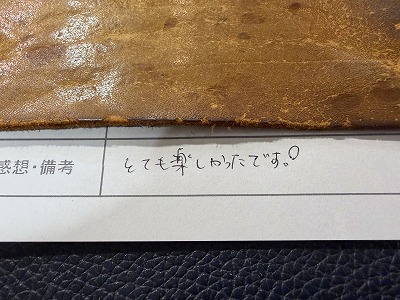 感想・備考
とても楽しかったです。